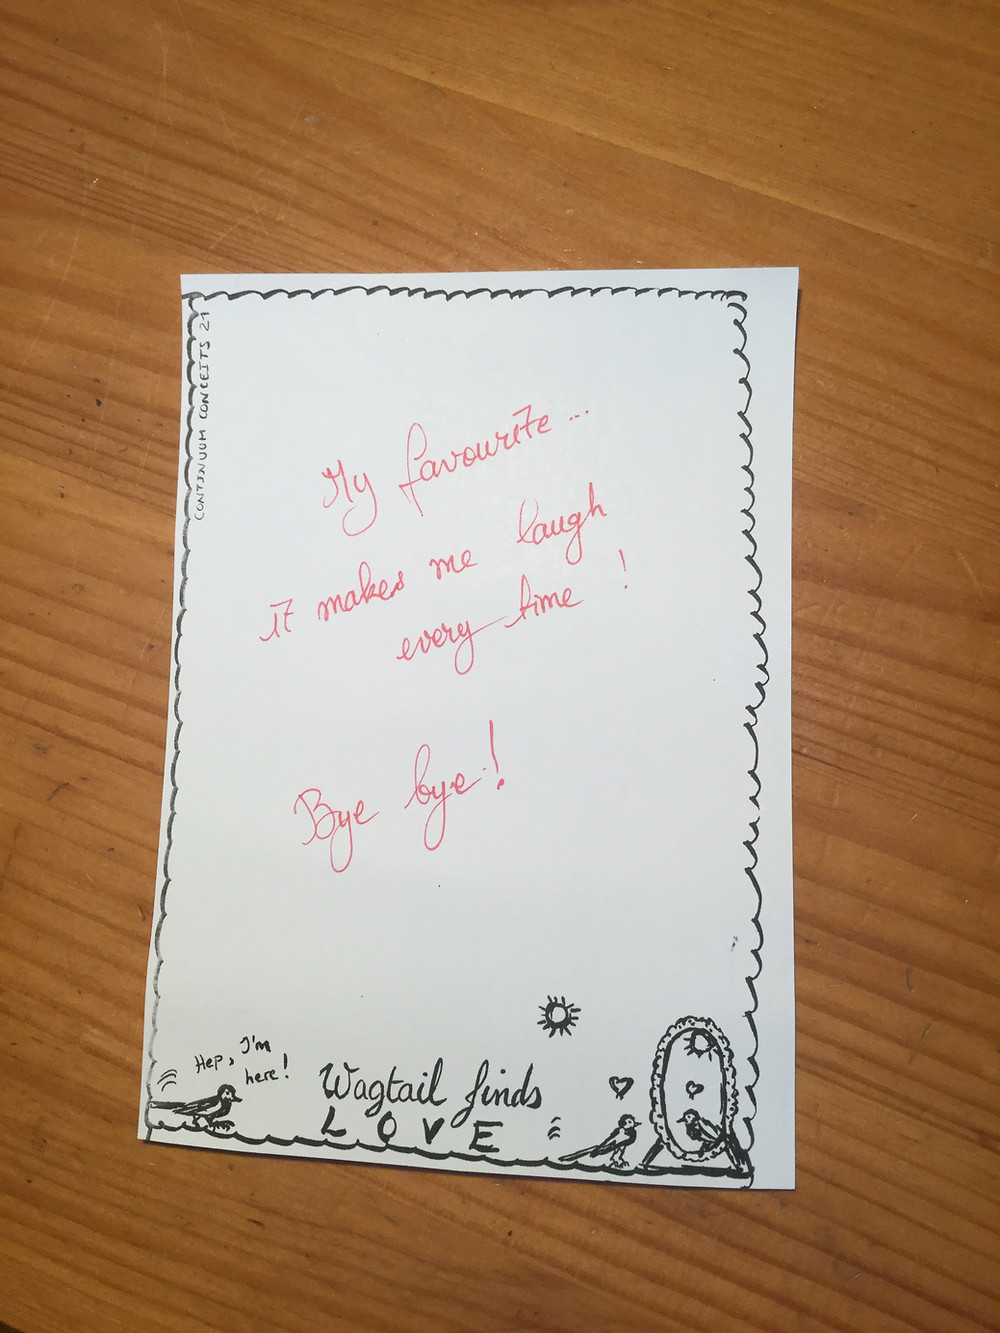 CONTINUUM CONCEITS 21
My favourite...
it makes me laugh
every time!
Bye bye!
Hep, I'm
here!
Wagtail finds
LOVE